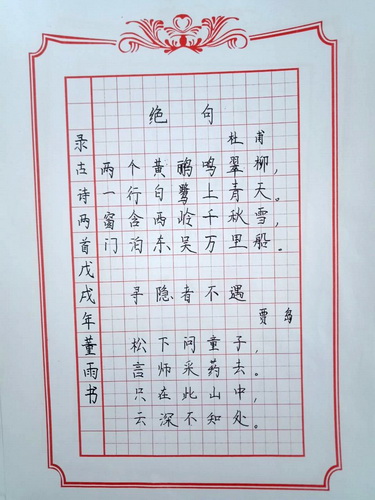 绝句
杜甫
两个黄鹂鸣翠柳，
一行白鹭上青天。
窗含西岭千秋雪，
门泊东吴万里船。
寻隐者不遇
贾岛
松下问童子，
言师采药去。
只在此山中，
云深不知处。
录古诗两首戊戌年董雨书